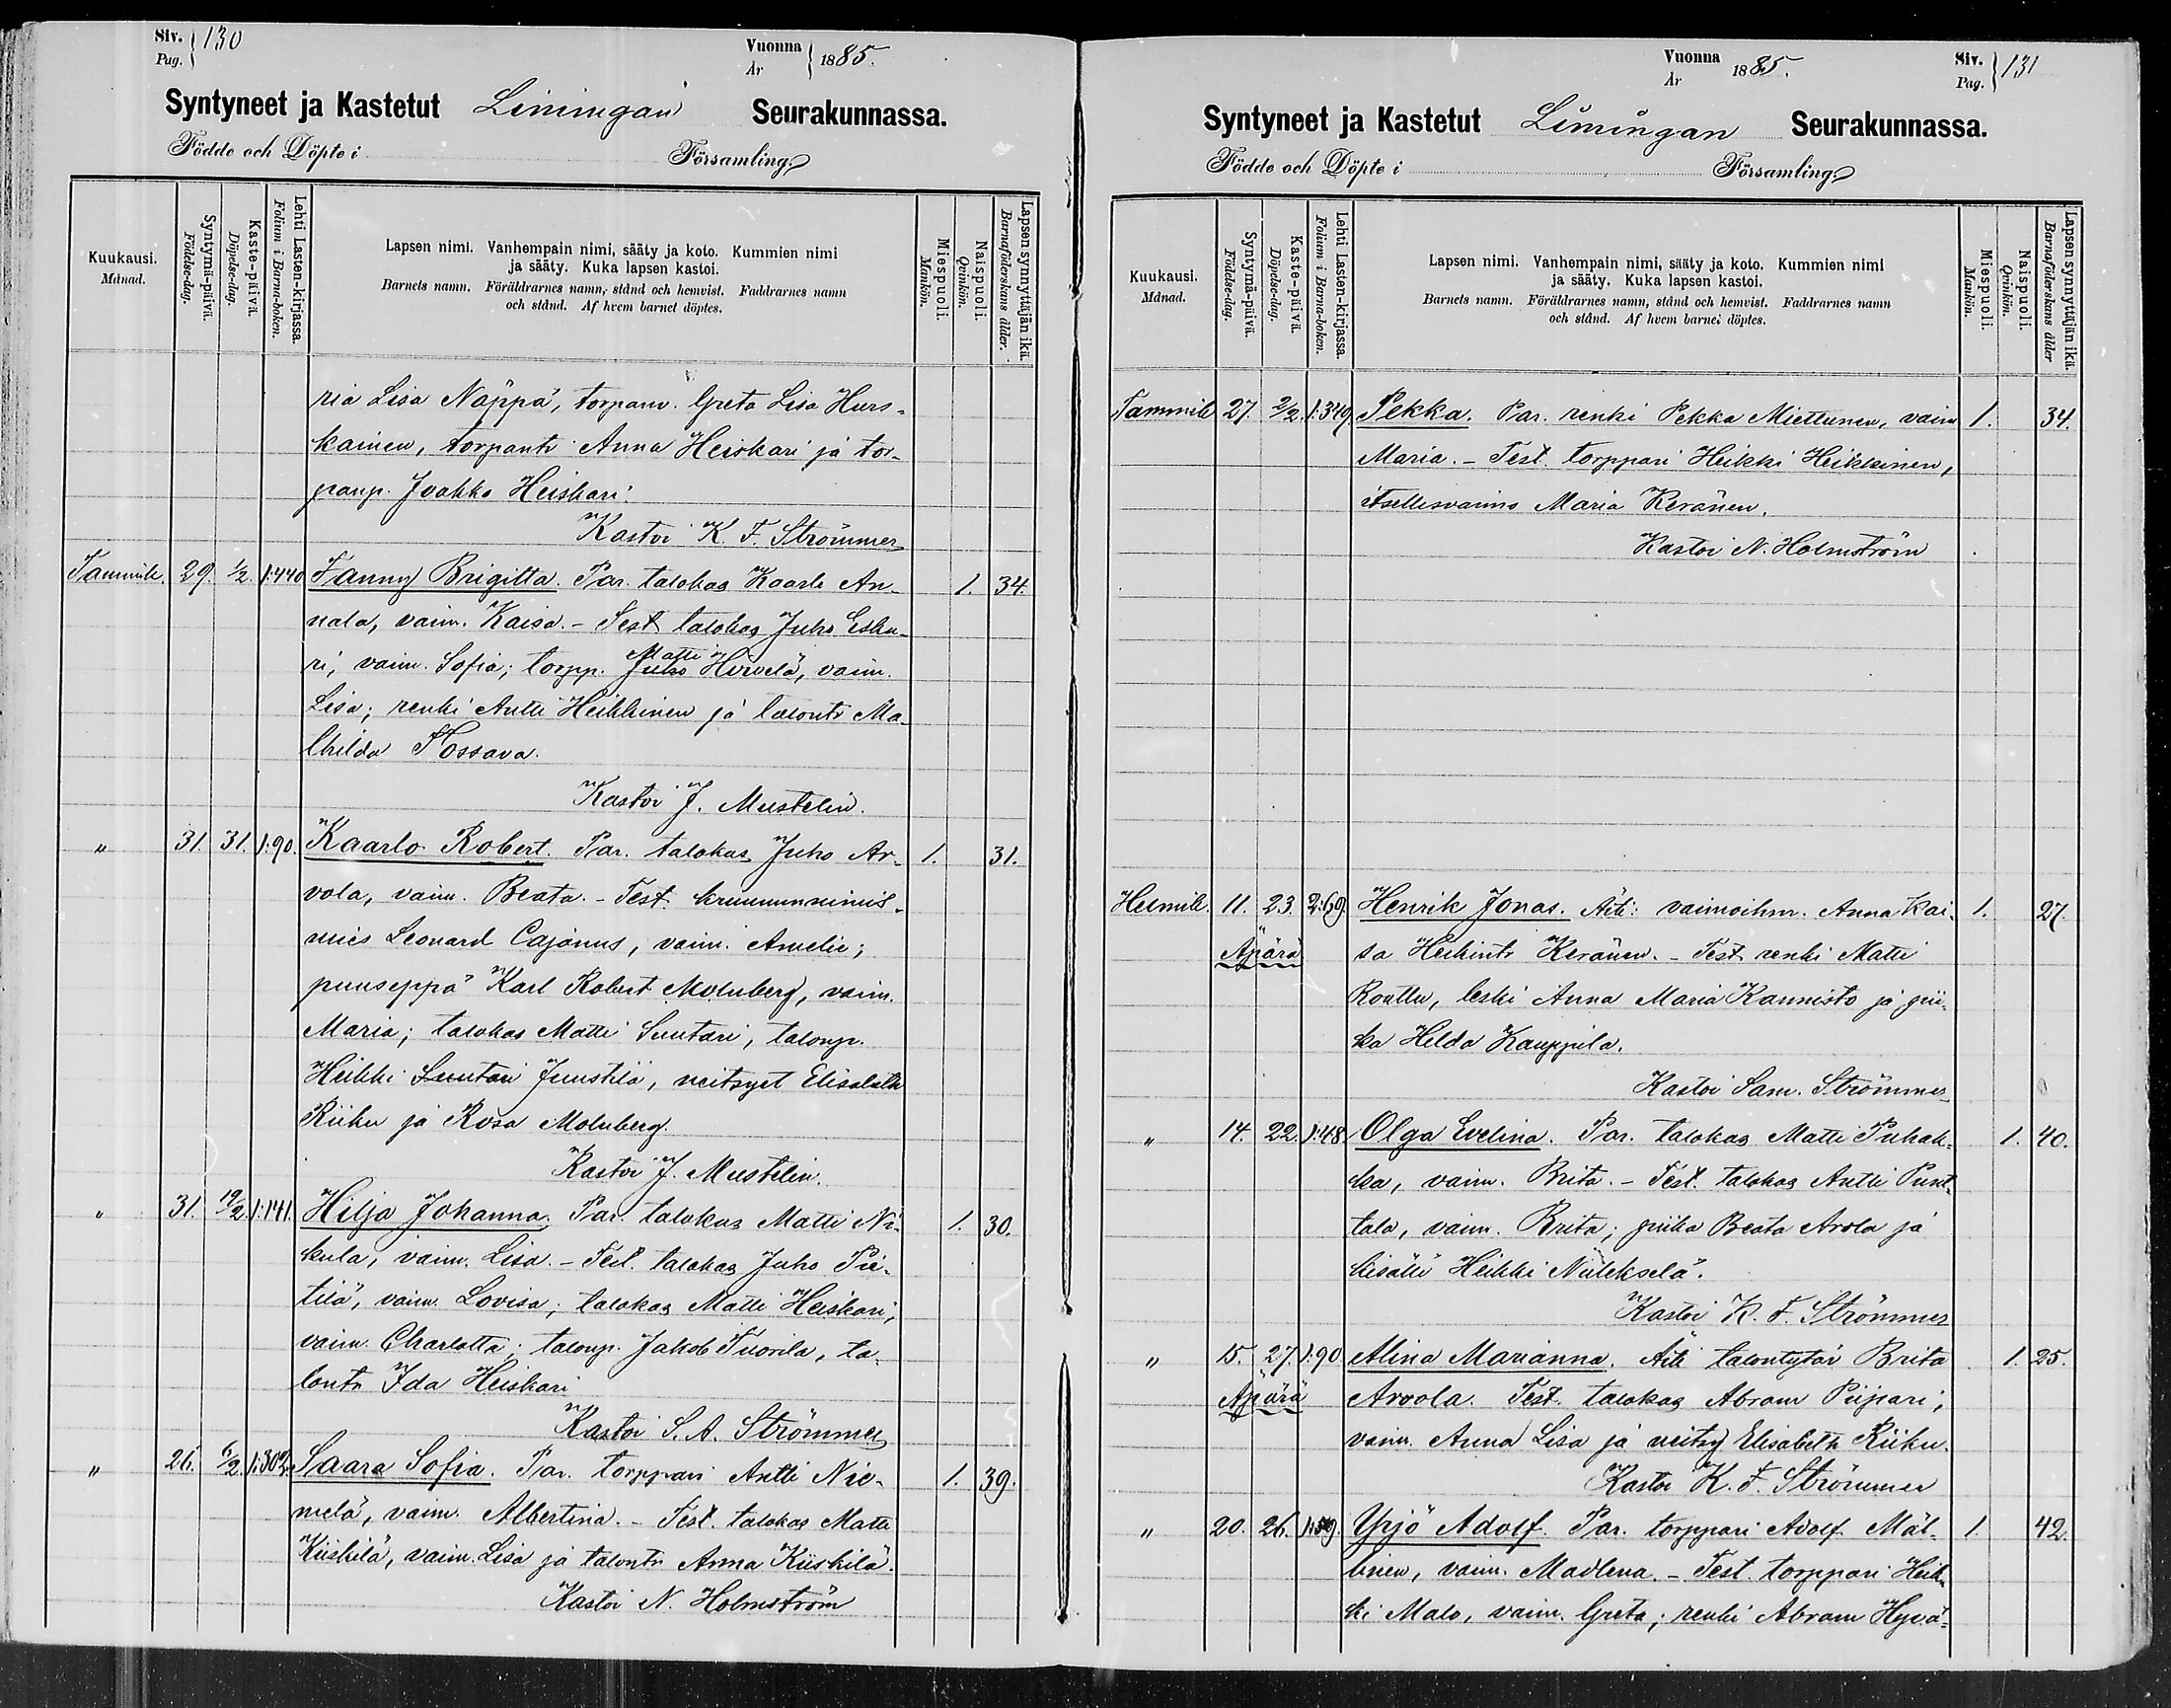 Siv. 130
Pag.
Vuonna 1885.
År
Syntyneet ja Kastetut Limingan Seurakunnassa.
Födde och Döpte i Församling.
Kuukausi.
Månad.
Syntymä-päivä.
Födelse-dag.
Kaste-päivä.
Döpelse-dag.
Lehti Lasten-kirjassa.
Folium i Barna-boken.
Lapsen nimi. Vanhempain nimi, sääty ja koto. Kummien nimi
ja sääty. Kuka lapsen kastoi.
Barnets namn. Föräldrarnes namn, stånd och hemvist. Faddrarnes namn
och stånd. Af hvem barnet döptes.
Miespuoli.
Mankön.
Naispuoli.
Qvinkön.
Lapsen synnyttäjän ikä.
Barnaföderskans ålder.
ria Lisa Näppä, torpanv. Greta Lisa Hurs-
kainen, torpantr Anna Heiskari ja tor-
panp. Jaakko Heiskari.
Kastoi K. F. Strömmer
Tammik. 29. 1/2. 1:440 Fanny Brigitta. Par. talokas Kaarle An- 1. 34.
nala, vaim. Kaisa. - Test. talokas Juho Esku-
ri, vaim. Sofia; torpp. Juho Hirvelä, vaim.
Matti
Lisa; renki Antti Heikkinen ja talontr Ma-
thilda Tossava.
Kastoi J. Mustelin.
" 31. 31. 1:90. Kaarlo Robert. Par. talokas Juho Ar- 1. 31.
vola, vaim. Beata. - Test. kruununnimis-
mies Leonard Cajanus, vaim. Amelie;
puuseppä Karl Robert Molnberg, vaim.
Maria; talokas Matti Suutari, talonp.
Heikki Suutari Juustila, neitsyet Elisabeth
Riiku ja Rosa Molnberg.
Kastoi J. Mustelin.
" 31. 19/2. 1:141. Hilja Johanna. Par. talokas Matti Ni- 1. 30.
kula, vaim. Lisa. - Test. talokas Juho Pie-
tilä, vaim. Lovisa; talokas Matti Heiskari,
vaim. Charlotta; talonp. Jakob Tuorila, ta-
lontr Ida Heiskari
Kastoi S. A. Strömmer
" 26. 6/2. 1:302. Saara Sofia. Par. torppari Antti Nie- 1. 39.
melä, vaim. Albertina. - Test. talokas Matti
Kiiskilä, vaim. Lisa ja talontr Anna Kiiskilä.
Kastoi N. Holmström
Vuonna 1885.
År
Siv. 131
Pag.
Syntyneet ja Kastetut Limingan Seurakunnassa.
Födde och Döpte i Församling.
Kuukausi.
Månad.
Syntymä-päivä.
Födelse-dag.
Kaste-päivä.
Döpelse-dag.
Lehti Lasten-kirjassa.
Folium i Barna-boken.
Lapsen nimi. Vanhempain nimi, sääty ja koto. Kummien nimi
ja sääty. Kuka lapsen kastoi.
Barnets namn. Föräldrarnes namn, stånd och hemvist. Faddrarnes namn
och stånd. Af hvem barnet döptes.
Miespuoli.
Mankön.
Naispuoli.
Qvinkön.
Lapsen synnyttäjän ikä.
Barnaföderskans ålder
Tammik 27. 2/2. 1:349. Pekka. Par. renki Pekka Miettunen, vaim 1. 34.
Maria. - Test. torppari Heikki Heikkinen,
itsellisvaimo Maria Keränen.
Kastoi N. Holmström
Helmik. 11. 23. 2:69. Henrik Jonas. Äiti: vaimoihm. Anna Kai- 1. 27.
Äpärä sa Heikintr Keränen. - Test. renki Matti
Routtu, leski Anna Maria Kannisto ja pii-
ka Hilda Kauppila.
Kastoi Sam. Strömmer
" 14. 22. 1:48. Olga Evelina. Par. talokas Matti Puhak- 1. 40.
ka, vaim. Brita. - Test. talokas Antti Punt-
tala, vaim. Brita; piika Beata Arola ja
kisälli Heikki Niileksela.
Kastoi K. F. Strömmer
" 15. 27. 1:90 Alina Marianna. Äiti talontytär Brita 1. 25.
Äpärä Arvola. Test. talokas Abram Piipari,
vaim. Anna Lisa ja neitsy Elisabeth Riiku.
Kastoi K. F. Strömmer
" 20. 26. Yrjö Adolf. Par. torppari Adolf Mäl- 1. 42.
linen, vaim. Madlena. - Test. torppari Heik-
ki Malo, vaim. Greta; renki Abram Hyvä-